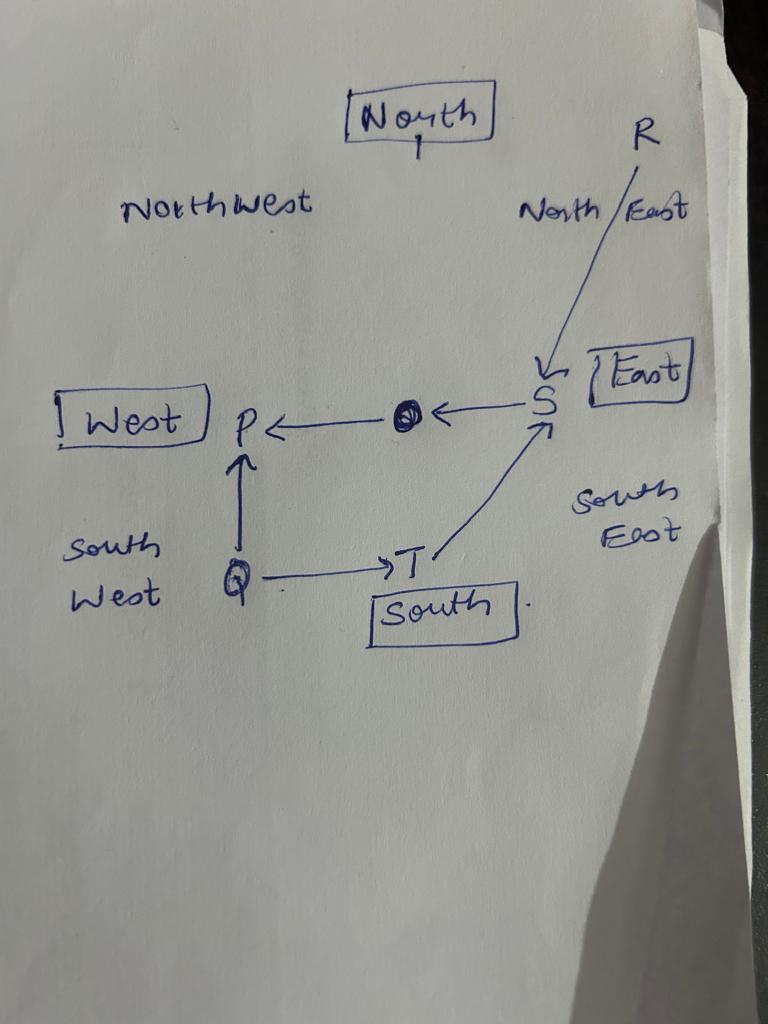 North
R
Northwest
North East
East
S
West
P
South
East
South
West
Q
T
South